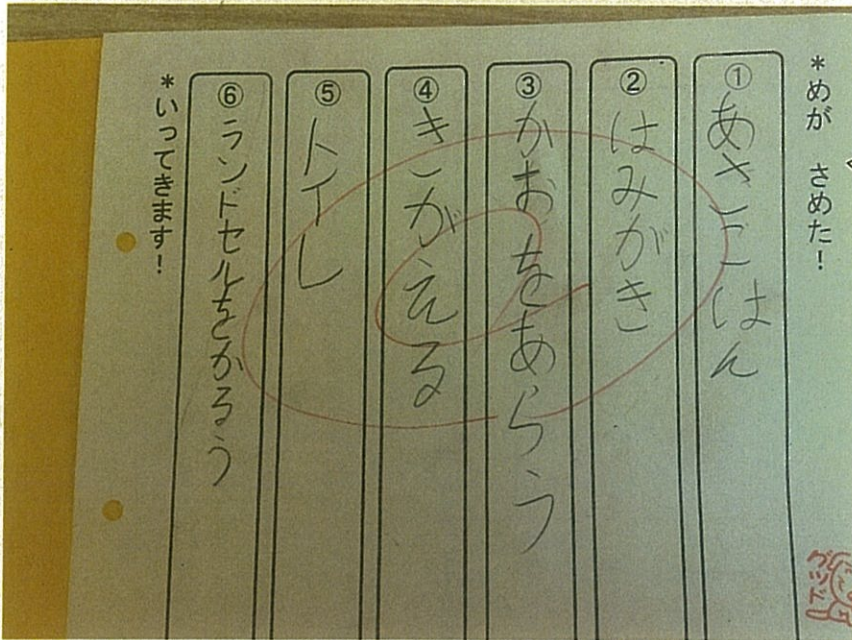 *めが さめた!
①あさごはん
②はみがき
③かおをあらう
④きがえる
⑤トイレ
⑥ランドセルをかるう
*いってきます!
グッド